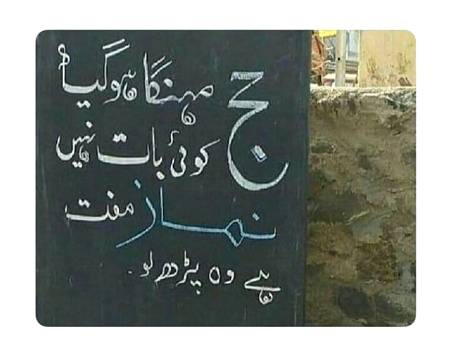 حج مہنگا ہوگیا
کوئی بات نہیں
نماز مفت
ہے وہ پڑھ لو۔